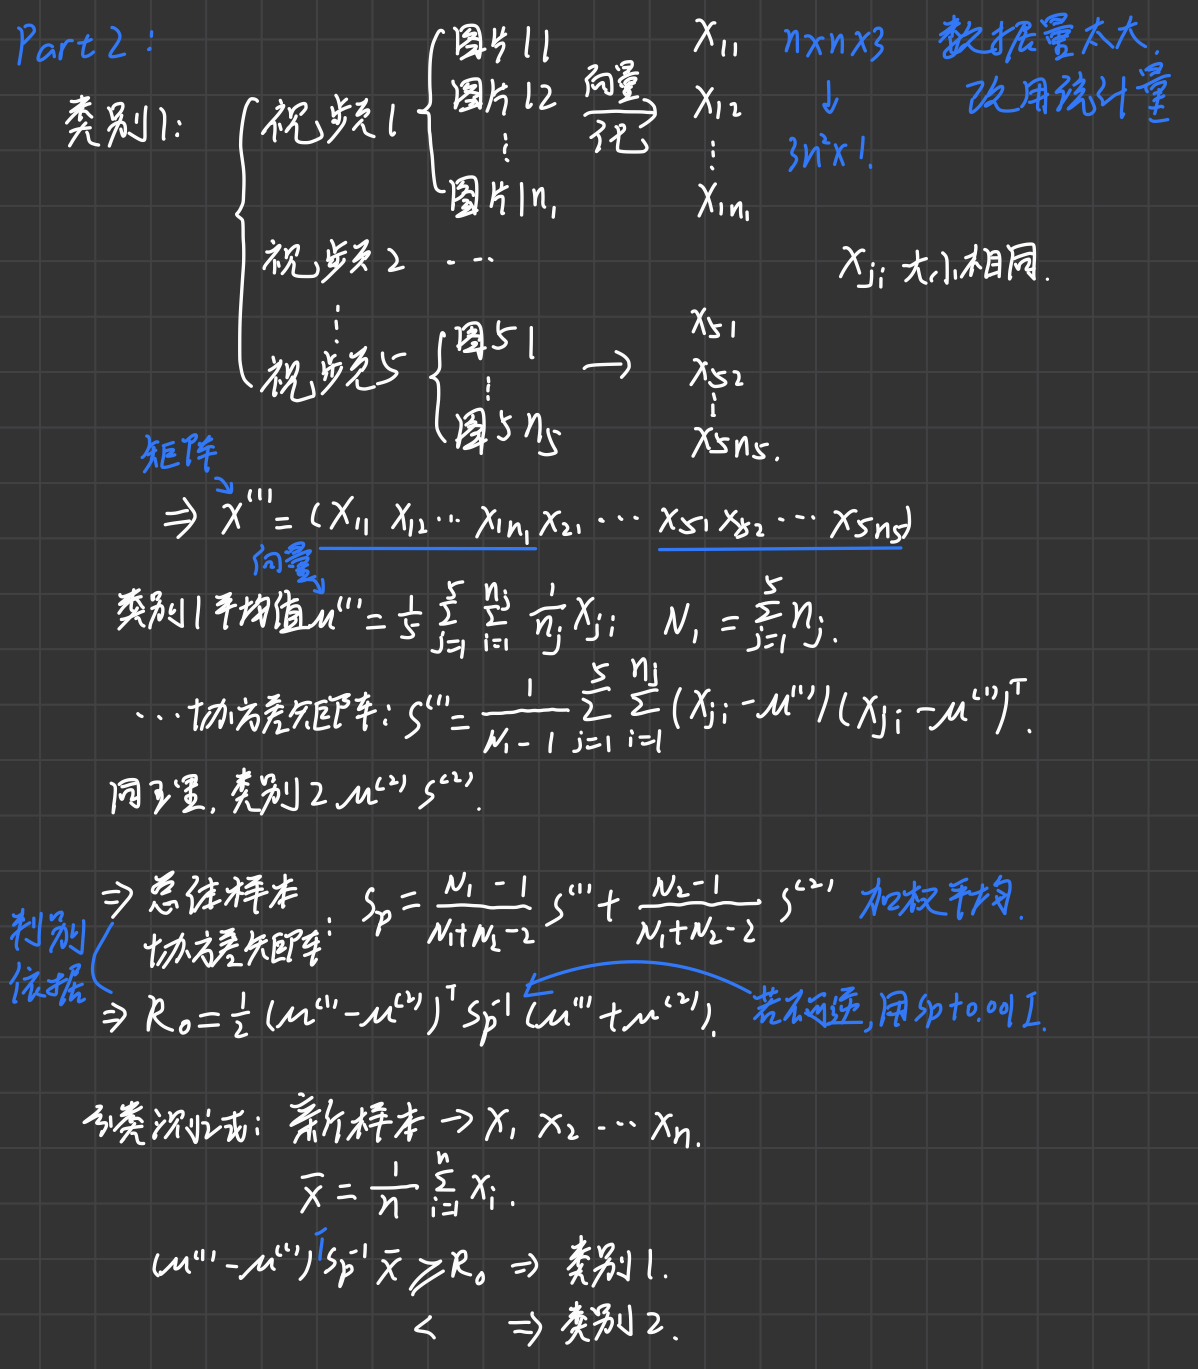 Part 2:
类别1:
视频1
图片11
图片12
⋮
图片1n₁
向量化
X₁₁
X₁₂
⋮
X₁ₙ₁
n×n×3
↓
3n²×1.
数据量太大.
改用统计量
视频2 ⋯
⋮
Xⱼᵢ 大小相同.
视频5
图51
⋮
图5n₅
→
X₅₁
X₅₂
⋮
X₅n₅.
矩阵
⇒ X⁽¹⁾ = (X₁₁ X₁₂ ⋯ X₁n₁ X₂₁ ⋯ X₅₁ X₅₂ ⋯ X₅n₅)
向量
类别1平均值 μ⁽¹⁾ = 1/5 Σⱼ₌₁⁵ Σᵢ₌₁ⁿʲ 1/nⱼ Xⱼᵢ N₁ = Σⱼ₌₁⁵ nⱼ.
⋯协方差矩阵: S⁽¹⁾ = 1/(N₁-1) Σⱼ₌₁⁵ Σᵢ₌₁ⁿʲ (Xⱼᵢ - μ⁽¹⁾)(Xⱼᵢ - μ⁽¹⁾)ᵀ.
同理, 类别2 μ⁽²⁾ S⁽²⁾.
⇒ 总体样本
协方差矩阵:
Sp = (N₁-1)/(N₁+N₂-2) S⁽¹⁾ + (N₂-1)/(N₁+N₂-2) S⁽²⁾ 加权平均.
判别
依据
⇒ R₀ = 1/2 (μ⁽¹⁾ - μ⁽²⁾)ᵀ Sp⁻¹ (μ⁽¹⁾ + μ⁽²⁾).
若不可逆, 用Sp+0.001I.
分类测试: 新样本 → X₁ X₂ ⋯ Xn.
x̄ = 1/n Σᵢ₌₁ⁿ Xᵢ.
(μ⁽¹⁾ - μ⁽²⁾)ᵀ Sp⁻¹ x̄ ⩾ R₀ ⇒ 类别1.
< ⇒ 类别2.